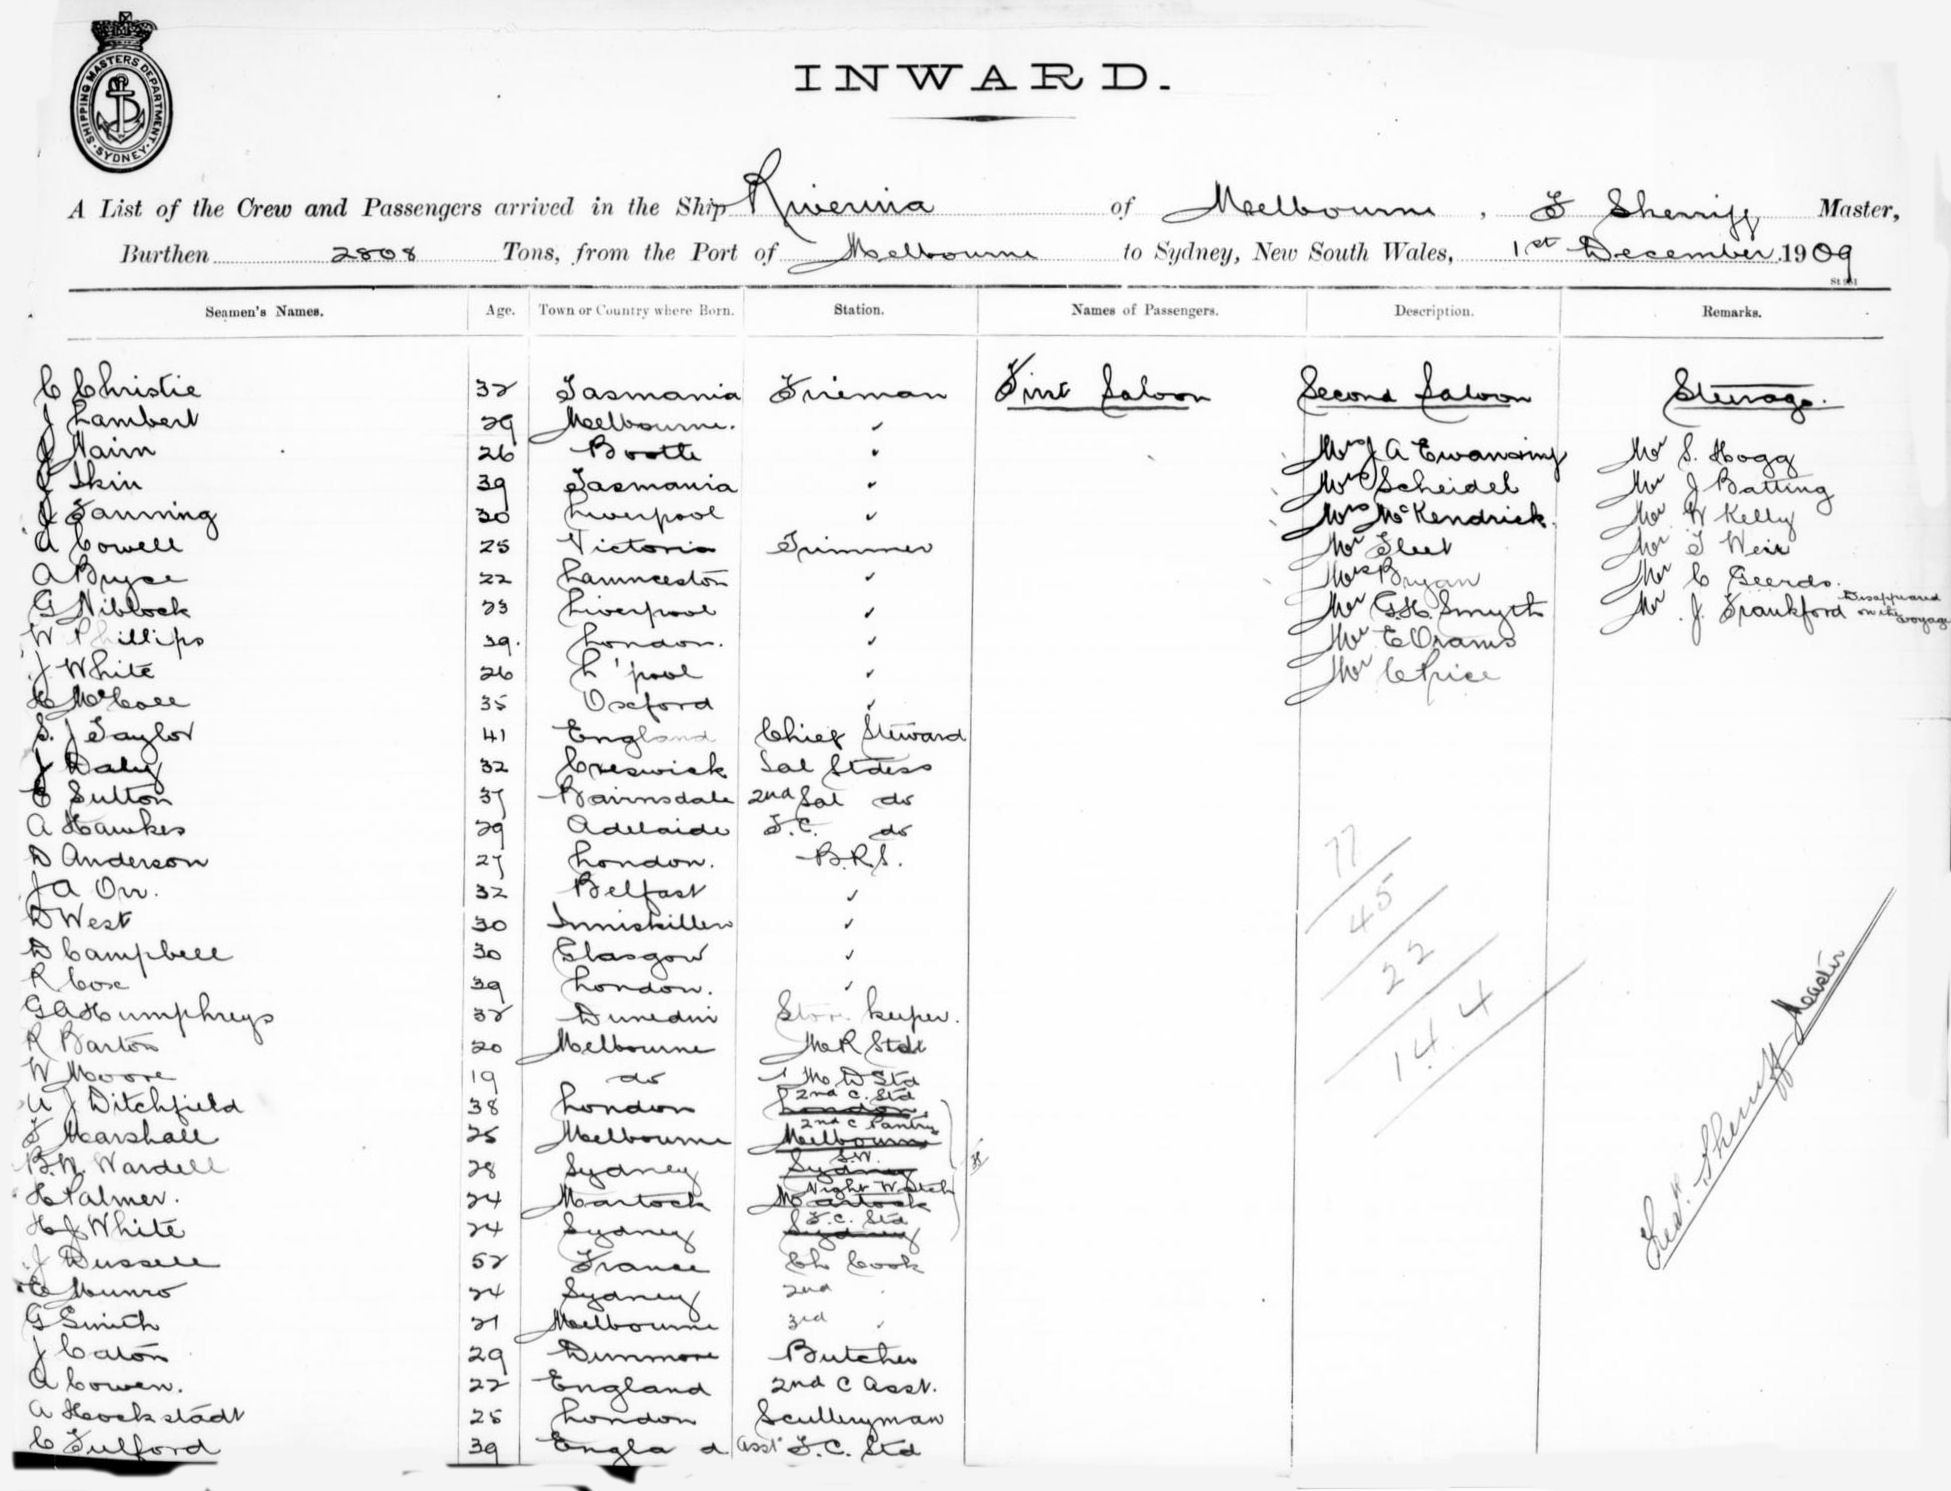 SHIPPING MASTERS DEPARTMENT. SYDNEY.
INWARD.
A List of the Crew and Passengers arrived in the Ship Riverina of Melbourne, F Sherriff Master,
Burthen 2808 Tons, from the Port of Melbourne to Sydney, New South Wales, 1st December 1909
Seamen's Names. Age. Town or Country where Born. Station. Names of Passengers. Description. Remarks.
C Christie 32 Tasmania Fireman First Saloon Second Saloon Steerage.
J Lambert 29 Melbourne. "
J Nairn 26 Bootle " Mrs J A Ewansing Mr S. Hogg
Skin 39 Tasmania " Mrs Scheidel Mr J Batting
J Fanning 30 Liverpool " Mrs McKendrick. Mr W Kelly
A Cowell 25 Victoria Trimmer Mr Fleet Mr T Weir
A Bryce 22 Launceston " Mrs Bryan Mr C Geerds.
G Niblock 23 Liverpool " Mr G.H. Smyth Mr. J. Frankford Disappeared on the voyage
W Phillips 39. London. " Mr E Orams
J White 26 L'pool " Mr C Price
H McColl 35 Oxford "
S. J Taylor 41 England Chief Steward
J Daly 32 Creswick Sal Stdess
E Sutton 37 Bairnsdale 2nd Sal do
A Hawkes 29 Adelaide F.C. do
D Anderson 27 London. B.R.S.
J A Orr. 32 Belfast "
D West 30 Inniskillen "
D Campbell 30 Glasgow "
R Cox 39 London. "
G A Humphreys 32 Dunedin Store keeper.
R Barton 20 Melbourne M R Std
W Moore 19 do M. D Std
A J Ditchfield 38 London London 2nd C. Std
F Marshall 25 Melbourne Melbourne 2nd C Pantry
B. W. Wardell 28 Sydney Sydney S.W.
H Palmer. 24 Martock Martock Night Watch
H J White 24 Sydney Sydney F.C. Std
J Dussell 52 France Ch Cook
E Munro 24 Sydney 2nd "
G Smith 21 Melbourne 3rd "
J Caton 29 Dunmore Butcher
A Cowen. 22 England 2nd C Asst.
A Hockstadt 25 London Sculleryman
C Fulford 39 England Asst F.C. Std
77
45
22
144
Sherriff Master